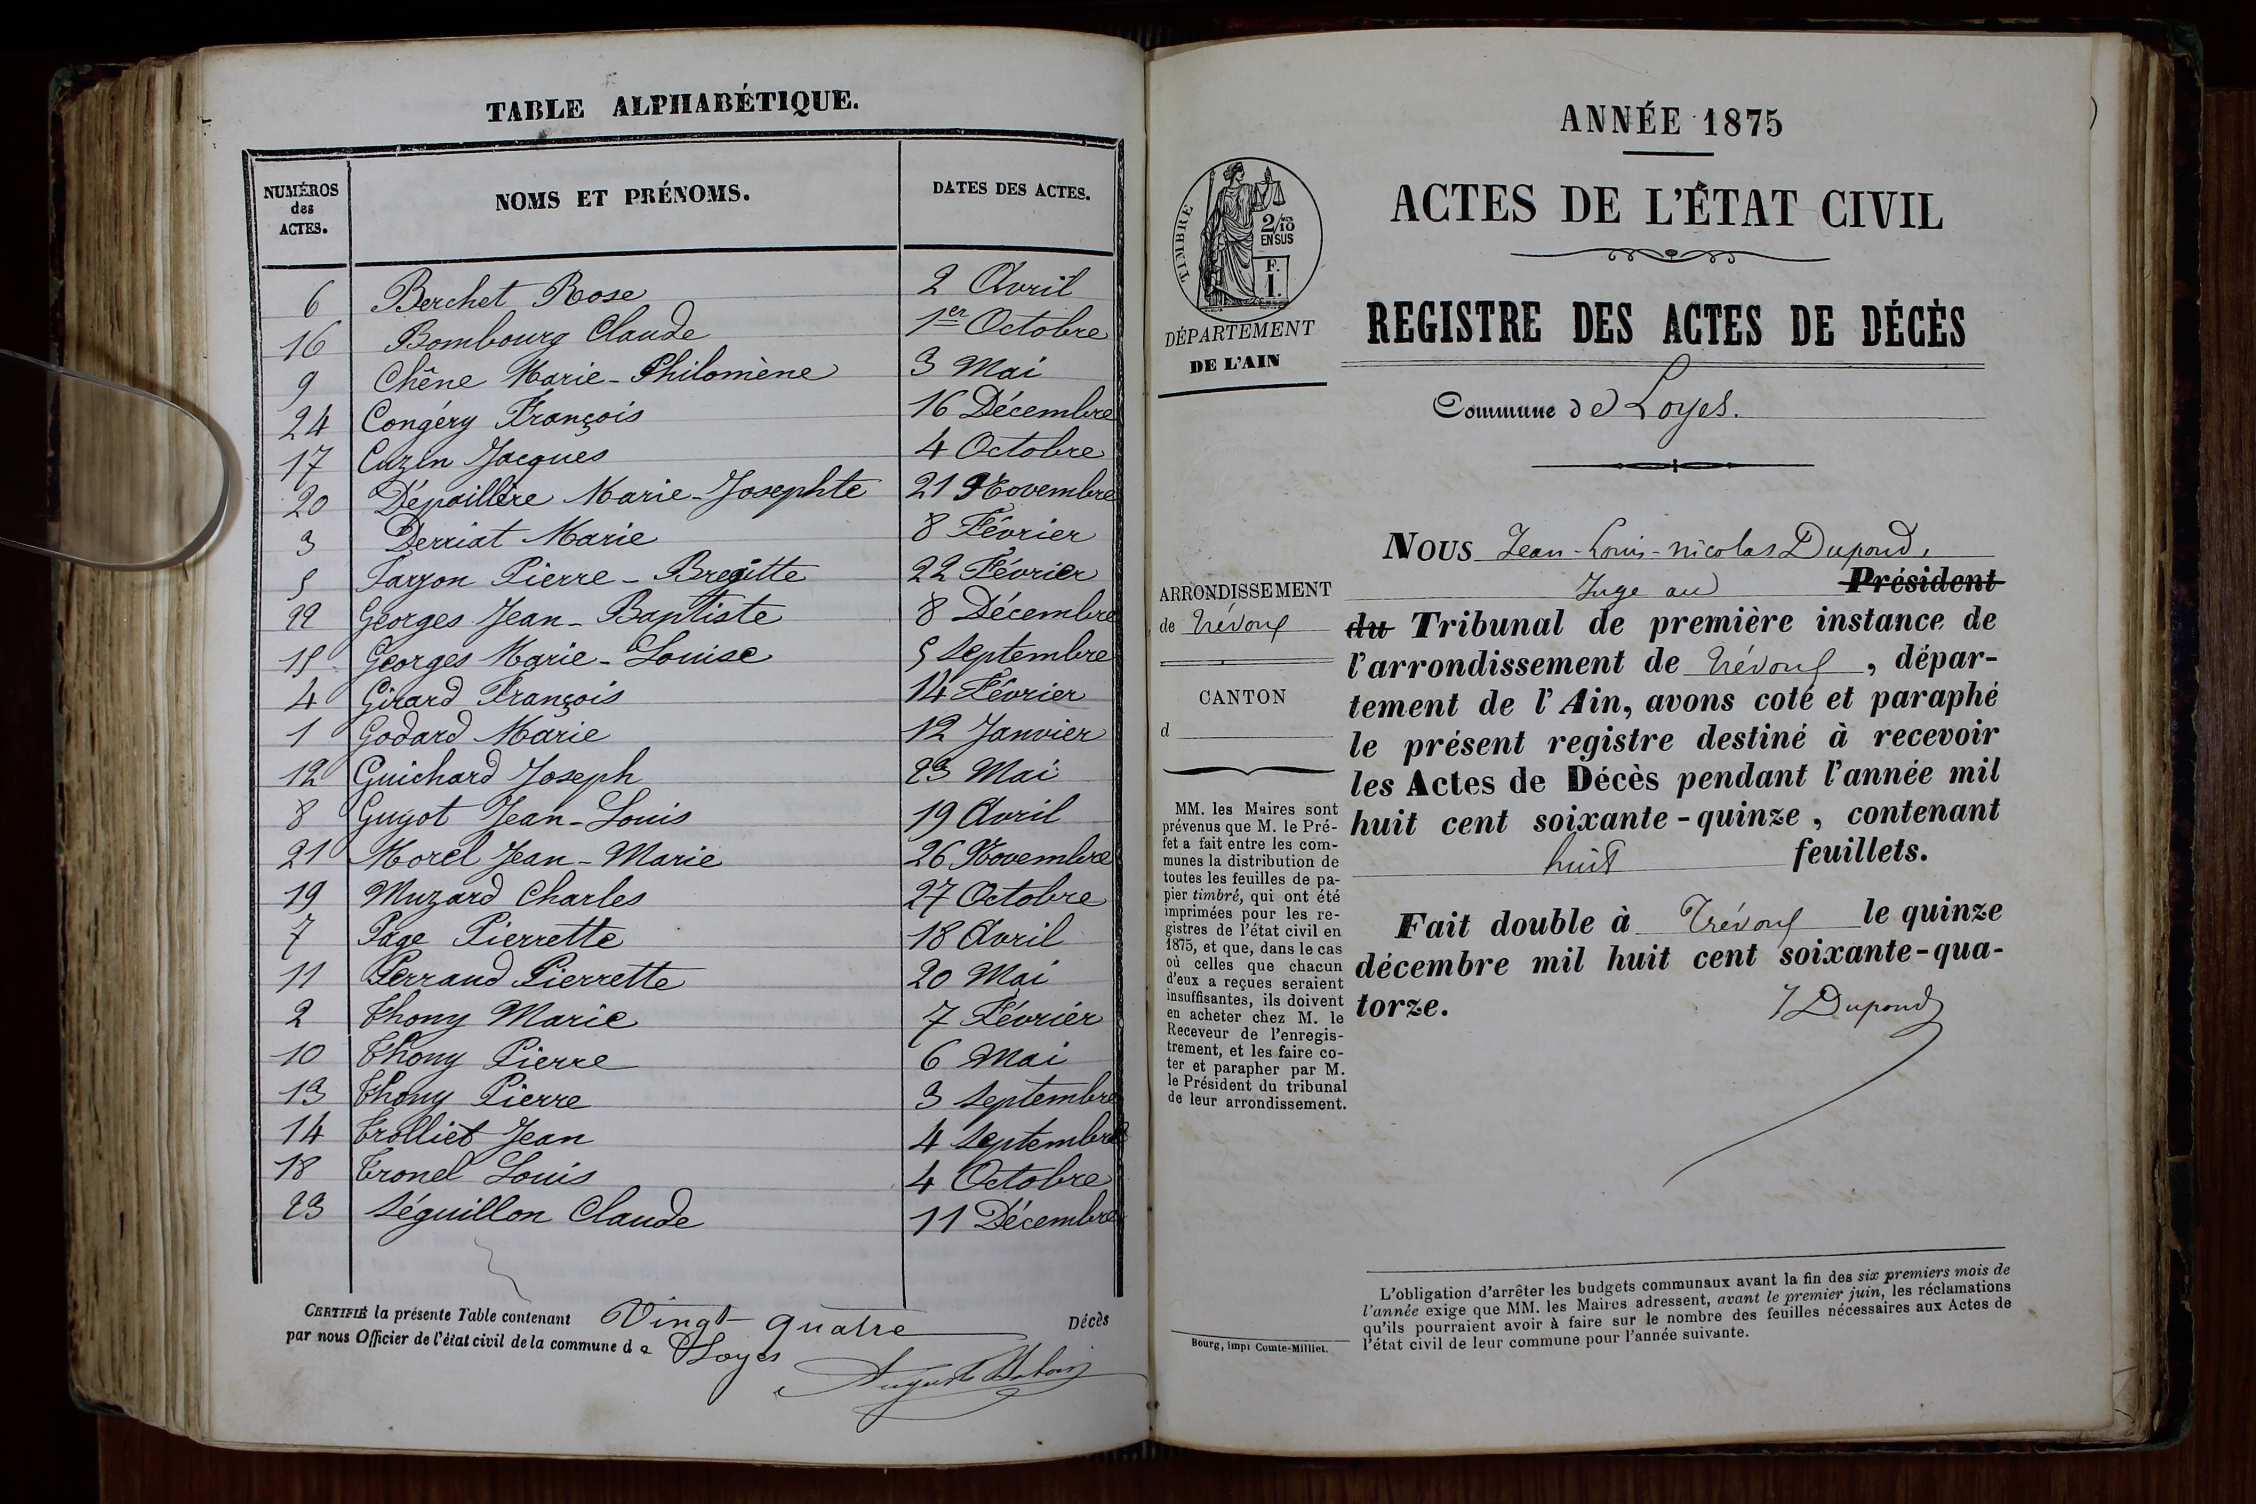 TABLE ALPHABÉTIQUE.
NUMÉROS des ACTES. NOMS ET PRÉNOMS. DATES DES ACTES.
6 Berchet Rose 2 Avril
16 Bombourg Claude 1er Octobre
9 Chêne Marie-Philomène 3 Mai
24 Congéry François 16 Décembre
17 Cuzin Jacques 4 Octobre
20 Dépaillère Marie-Josephte 21 Novembre
3 Derriat Marie 8 Février
5 Pierre - 22 Février
22 Georges Jean-Baptiste 8 Décembre
15 Georges Marie-Louise 5 Septembre
4 Girard François 14 Février
1 Godard Marie 12 Janvier
12 Guichard Joseph 23 Mai
8 Guyot Jean-Louis 19 Avril
21 Morel Jean-Marie 26 Novembre
19 Muzard Charles 27 Octobre
7 Page Pierrette 18 Avril
11 Perraud Pierrette 20 Mai
2 Thony Marie 7 Février
10 Thony Pierre 6 Mai
13 Thony Pierre 3 Septembre
14 Trolliet Jean 4 Septembre
18 Tronel Louis 4 Octobre
23 Séguillon Claude 11 Décembre
CERTIFIÉ la présente Table contenant Vingt-quatre Décès
par nous Officier de l'état civil de la commune de Loyes
ANNÉE 1875
ACTES DE L'ÉTAT CIVIL
TIMBRE
2/10
EN SUS
F.
1.
DÉPARTEMENT
DE L'AIN
REGISTRE DES ACTES DE DÉCÈS
Commune de Loyes.
ARRONDISSEMENT
de Trévoux
CANTON
d
MM. les Maires sont
prévenus que M. le Pré-
fet a fait entre les com-
munes la distribution de
toutes les feuilles de pa-
pier timbré, qui ont été
imprimées pour les re-
gistres de l'état civil en
1875, et que, dans le cas
où celles que chacun
d'eux a reçues seraient
insuffisantes, ils doivent
en acheter chez M. le
Receveur de l'enregis-
trement, et les faire co-
ter et parapher par M.
le Président du tribunal
de leur arrondissement.
NOUS Jean-Louis-Nicolas Dupond,
Juge au Président
du Tribunal de première instance de
l'arrondissement de Trévoux, dépar-
tement de l'Ain, avons coté et paraphé
le présent registre destiné à recevoir
les Actes de Décès pendant l'année mil
huit cent soixante-quinze, contenant
huit feuillets.
Fait double à Trévoux le quinze
décembre mil huit cent soixante-qua-
torze.
J Dupond
Bourg, impr Comte-Milliet.
L'obligation d'arrêter les budgets communaux avant la fin des six premiers mois de
l'année exige que MM. les Maires adressent, avant le premier juin, les réclamations
qu'ils pourraient avoir à faire sur le nombre des feuilles nécessaires aux Actes de
l'état civil de leur commune pour l'année suivante.